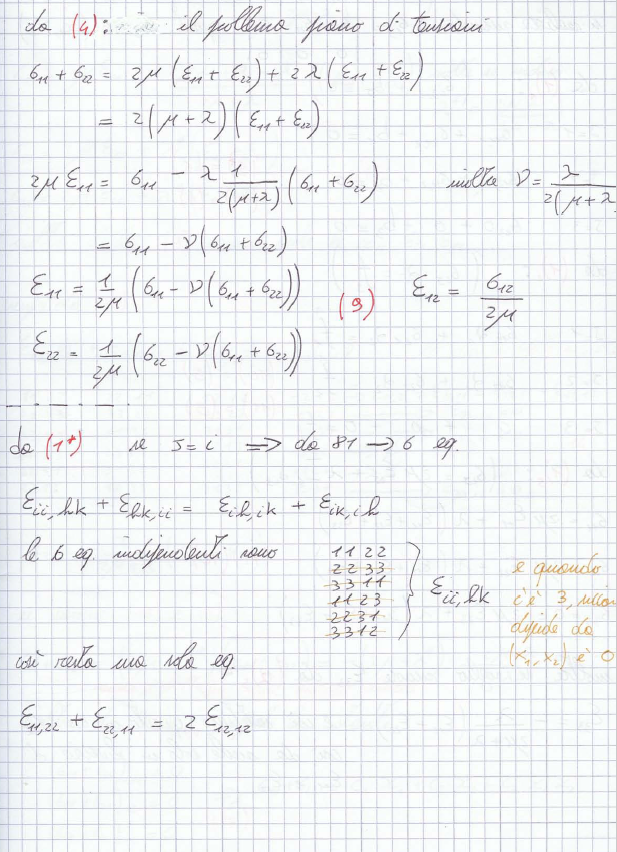 da (4): il problema piano di tensioni
σ₁₁ + σ₂₂ = 2μ (ε₁₁ + ε₂₂) + 2λ (ε₁₁ + ε₂₂)
= 2(μ + λ) (ε₁₁ + ε₂₂)
2μ ε₁₁ = σ₁₁ − λ 1/2(μ+λ) (σ₁₁ + σ₂₂) inoltre ν = λ/2(μ+λ
= σ₁₁ − ν(σ₁₁ + σ₂₂)
ε₁₁ = 1/2μ (σ₁₁ − ν(σ₁₁ + σ₂₂)) (9) ε₁₂ = σ₁₂/2μ
ε₂₂ = 1/2μ (σ₂₂ − ν(σ₁₁ + σ₂₂))
da (1*) se J = i ⟹ da 81 → 6 eq.
ε_ii,hk + ε_hk,ii = ε_ih,ik + ε_ik,ih
le 6 eq. indipendenti sono
11 22
22 33
33 11
11 23
22 31
33 12
} ε_ii,hk
e quando
c'è 3,
dipende da
(x₁, x₂) è 0
così resta una sola eq.
ε₁₁,₂₂ + ε₂₂,₁₁ = 2 ε₁₂,₁₂